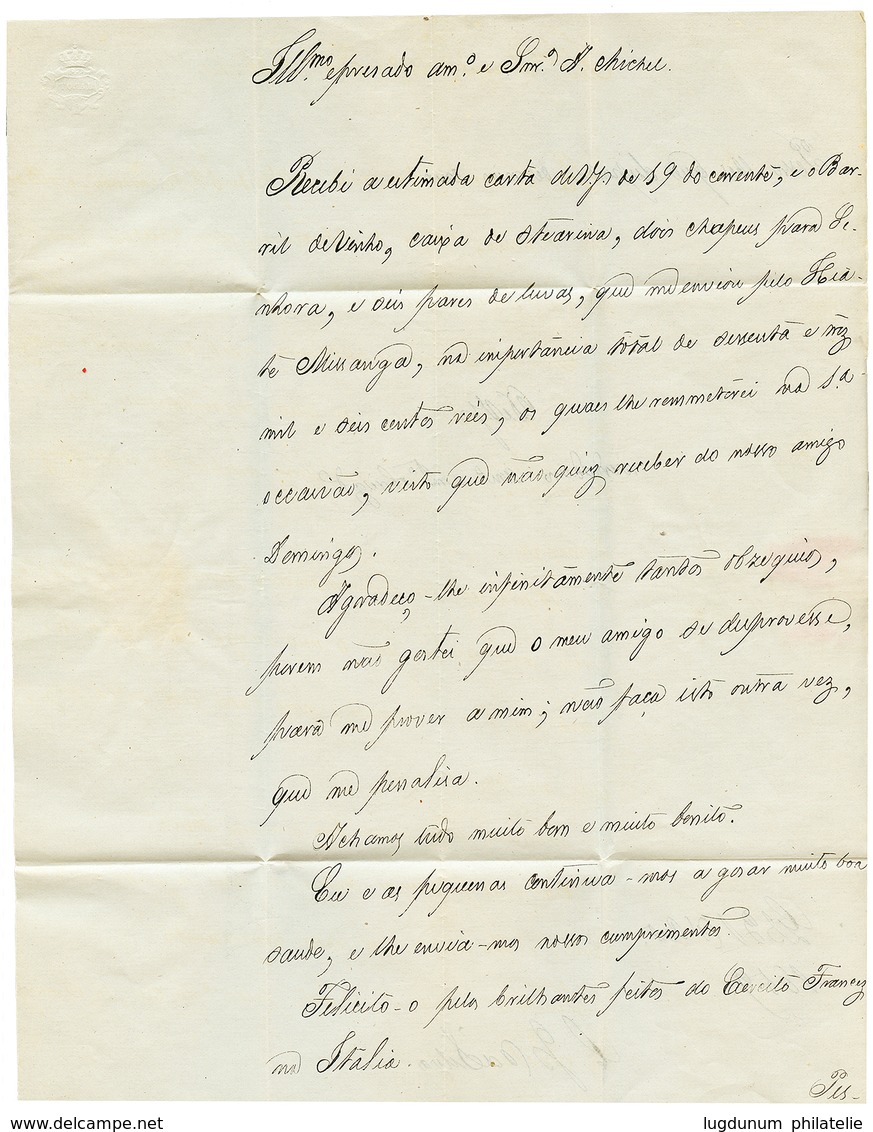 Ill.mo e presado am.o e Snr. A. Michel.
Recebi a estimada carta de V.S. de 19 do corrente, e o Bar-
ril de Vinho, caixa de stearina, dois chapeus para Se-
nhora, e seis pares de luvas, que me enviou pelo Hia-
te Missanga, na importancia total de sessenta e trez
mil e seis centos reis, os quaes lhe remmeterei na 1.a
occasião, visto que não quiz receber do nosso amigo
Domingos.
Agradeço-lhe infinitamente tantos obzequios,
porem não gostei que o meu amigo se desprovesse,
para me prover a mim; não faça isto outra vez,
que me penalisa.
Achamos tudo muito bom e muito bonito.
Eu e as pequenas continua-mos a gosar muito boa
saude, e lhe envia-mos nossos cumprimentos.
Felicito-o pelos brilhantes feitos do Exercito Francez
na Italia.
www.delcampe.net
lugdunum philatelie